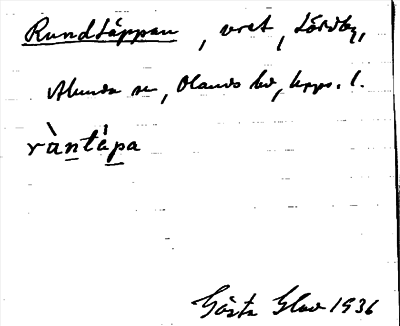 Rundtäppan, vret, Lördby,
Alunda sn, Olands hd, Upps. l.
ràntápa
Gösta Glad 1936